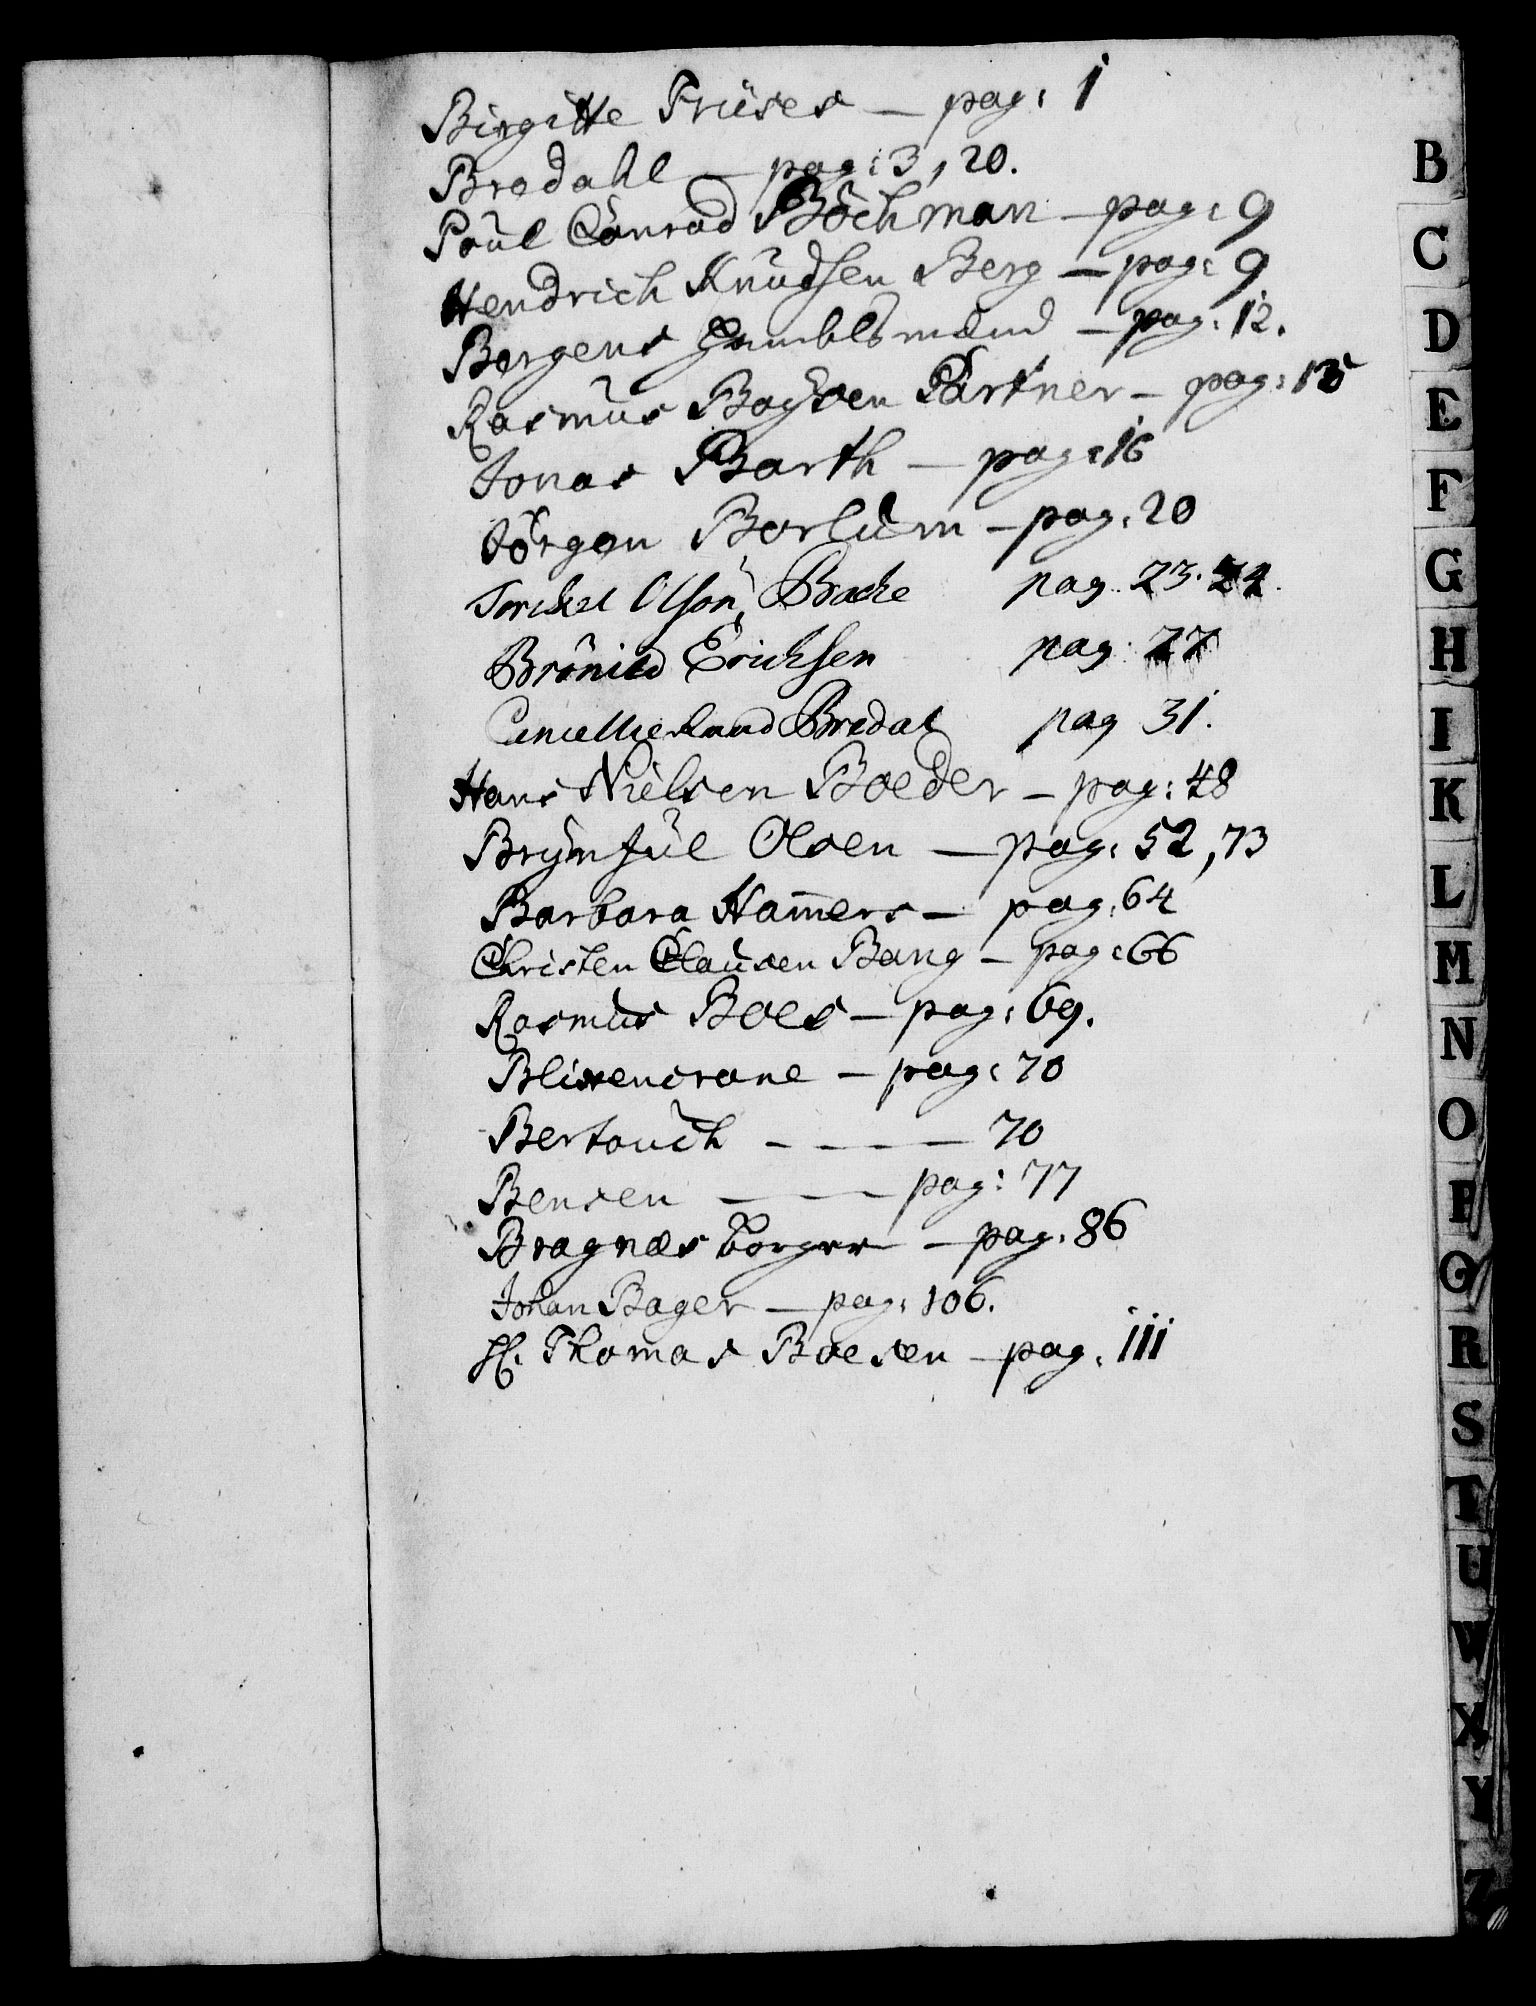 Birgitte Friises — pag: 1
Bredahl — pag: 3, 20.
Poul Conrad Böchman — pag: 9
Hendrich Knudsen Berg — pag: 9
Bergens Handelsmænd — pag: 12.
Rasmus Baysen Partner — pag: 15
Jonas Barth — pag: 16
Jörgen Borlum — pag: 20
Torckel Olsön Bache pag. 23. 24.
Brönild Erichsen pag. 27
Cancellieraad Bredal pag 31.
Hans Nielsen Boeder — pag: 48
Brynjul Olsen — pag: 52, 73
Barbara Ham̄ers — pag: 64
Christen Clausen Bang — pag: 66
Rasmus Boes — pag: 69.
Blixencrone — pag: 70
Bertouch — — — 70
Bensen — — pag: 77
Bragnæs borgere — pag. 86
Johan Bager — pag: 106.
Hr. Thomas Boesen — pag. 111
B
C
D
E
F
G
H
I
K
L
M
N
O
P
Q
R
S
T
U
W
X
Y
Z